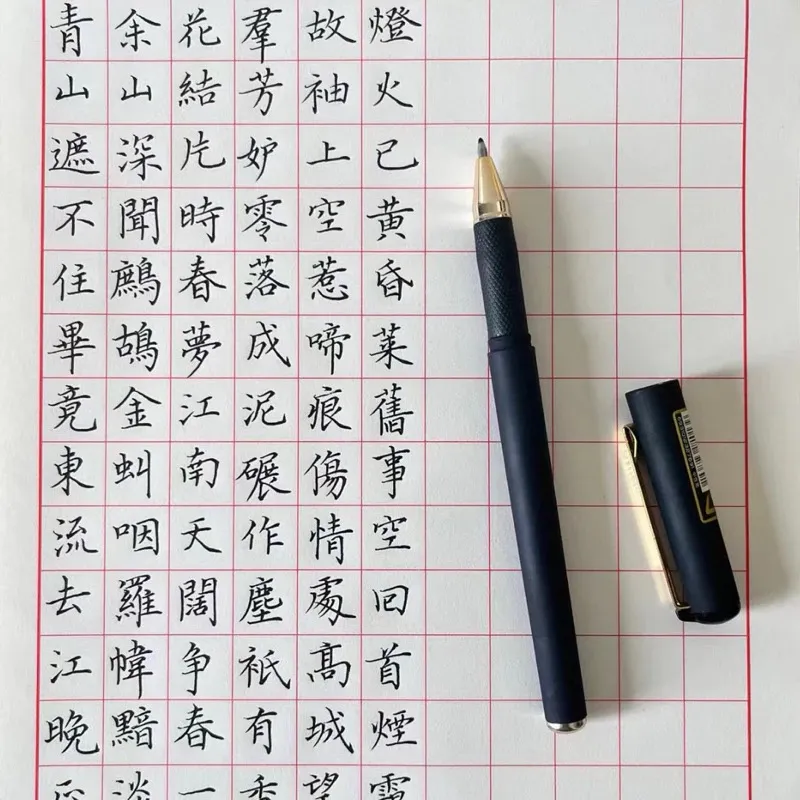 青山遮不住畢竟東流去江晚正
余山深聞鷓鴣金虯咽羅幃黯淡
花結片時春夢江南天闊争春一
羣芳妒零落成泥碾作塵衹有香
故袖上空惹啼痕傷情處高城望
燈火已黄昏莱舊事空回首煙